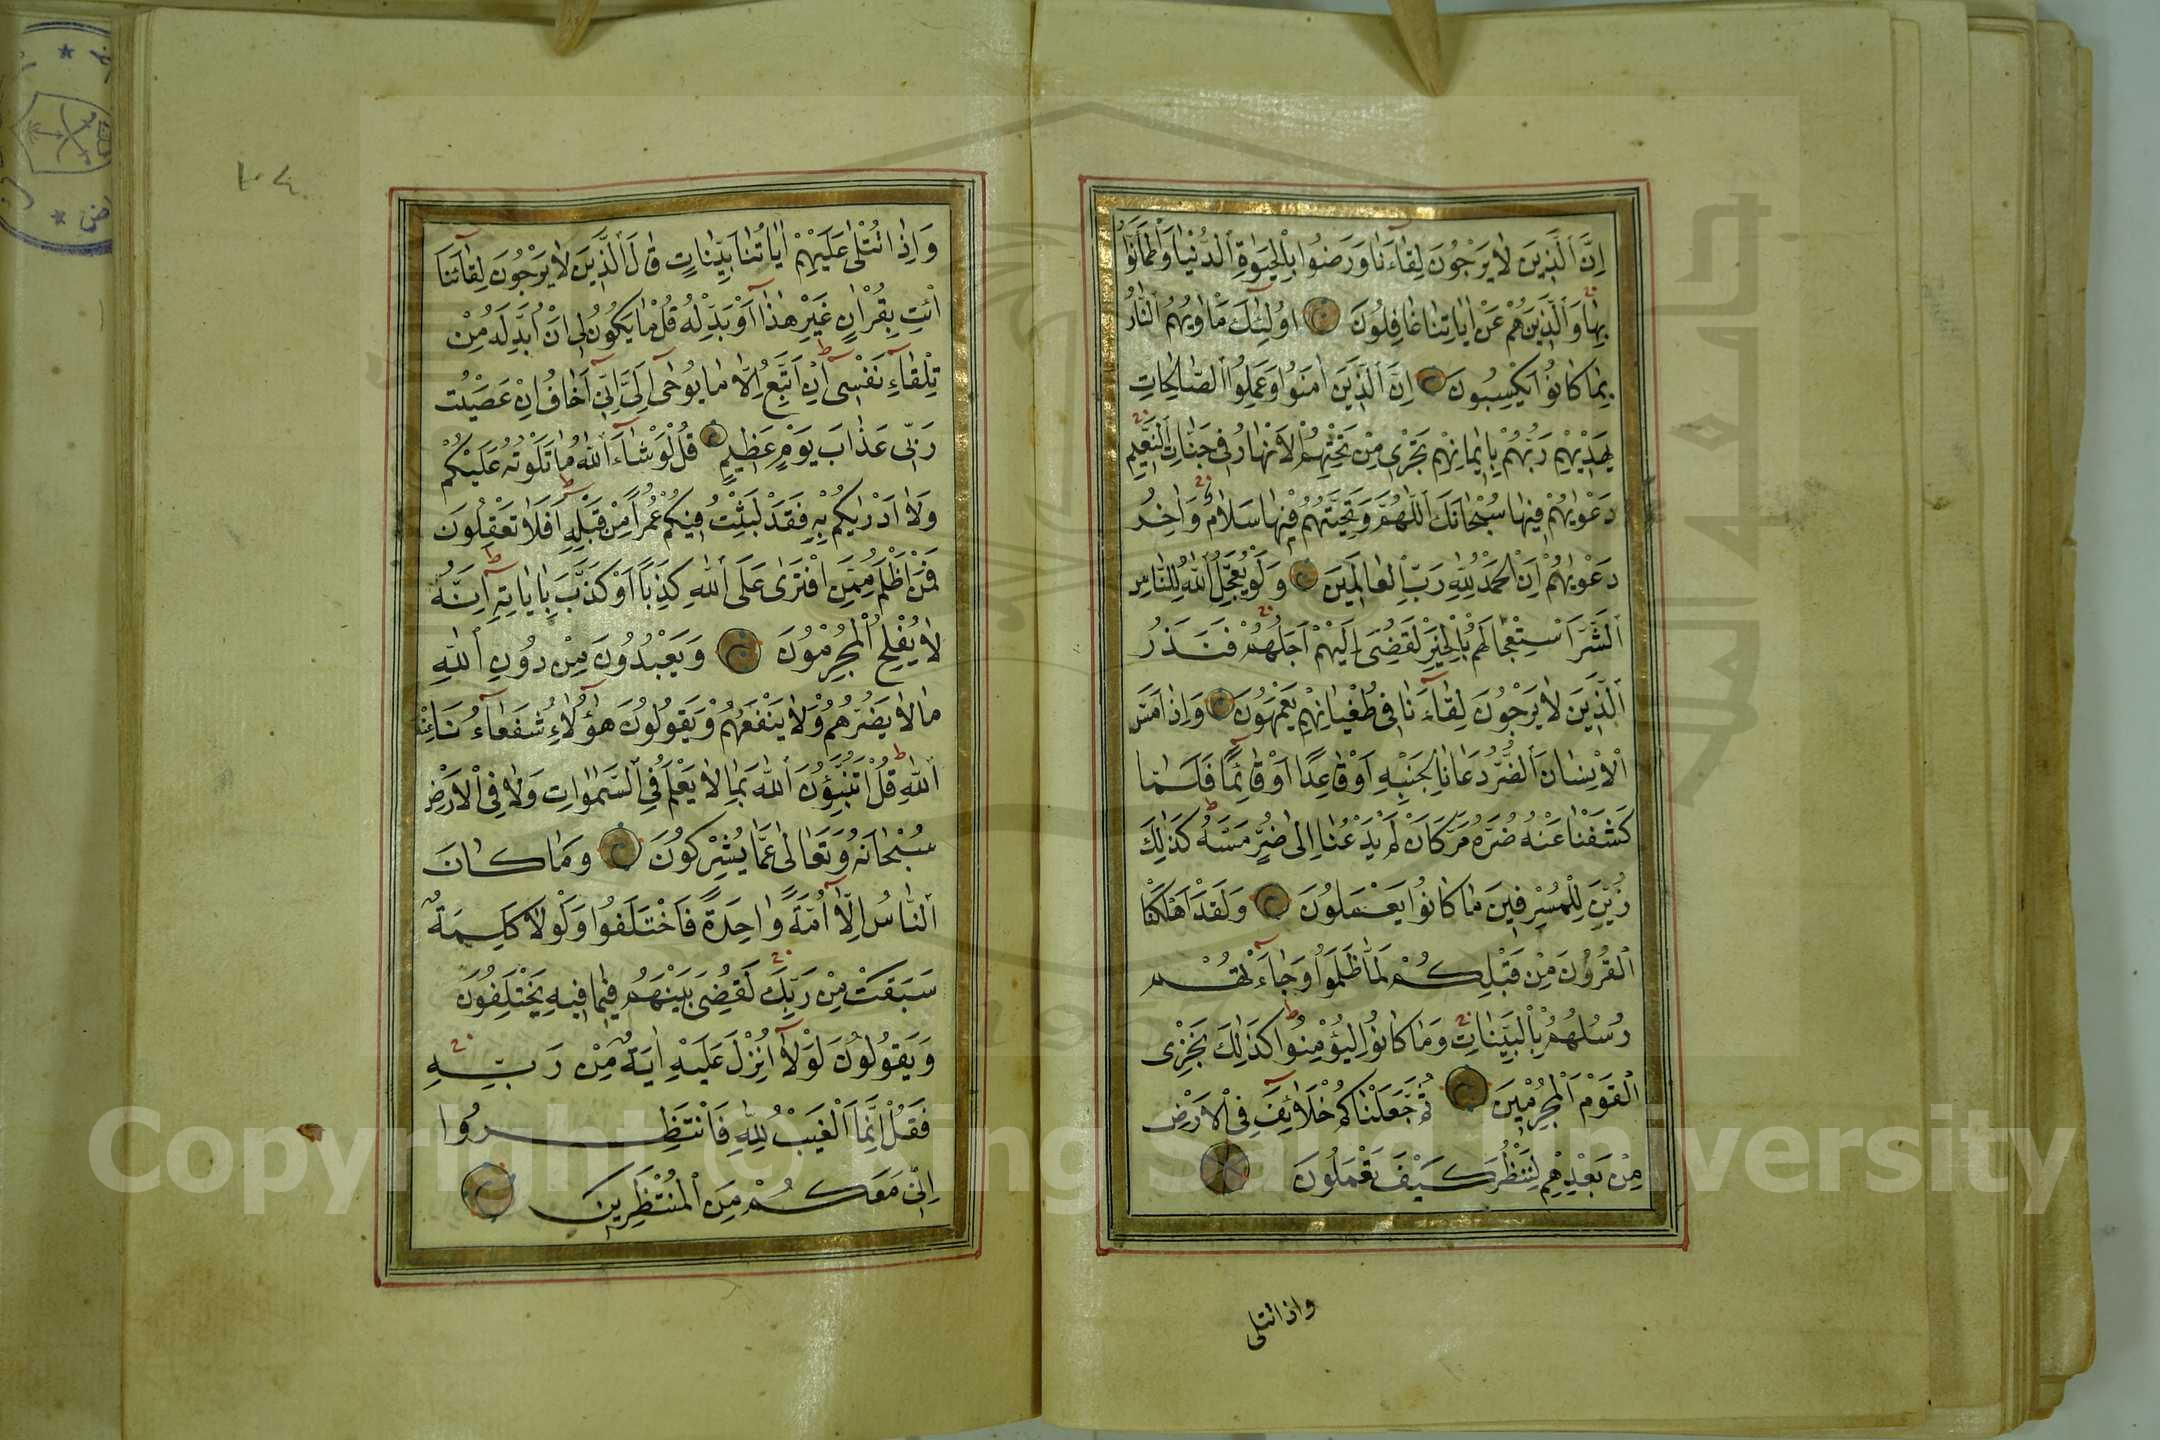 اِنَّ الَّذِينَ لَا يَرْجُونَ لِقَاءَنَا وَرَضُوا بِالْحَيٰوةِ الدُّنْيَا وَاطْمَاَنُّوا
بِهَا وَالَّذِينَ هُمْ عَنْ اٰيَاتِنَا غَافِلُونَ اُولٰئِكَ مَاْوٰيهُمُ النَّارُ
بِمَا كَانُوا يَكْسِبُونَ اِنَّ الَّذِينَ اٰمَنُوا وَعَمِلُوا الصَّالِحَاتِ
يَهْدِيْهِمْ رَبُّهُمْ بِاِيمَانِهِمْ تَجْرِى مِنْ تَحْتِهِمُ الْاَنْهَارُ فِى جَنَّاتِ النَّعِيمِ
دَعْوٰيهُمْ فِيهَا سُبْحَانَكَ اللّٰهُمَّ وَتَحِيَّتُهُمْ فِيهَا سَلَامٌ وَاٰخِرُ
دَعْوٰيهُمْ اَنِ الْحَمْدُ لِلّٰهِ رَبِّ الْعَالَمِينَ وَلَوْ يُعَجِّلُ اللّٰهُ لِلنَّاسِ
الشَّرَّ اسْتِعْجَالَهُمْ بِالْخَيْرِ لَقُضِىَ اِلَيْهِمْ اَجَلُهُمْ فَنَذَرُ
الَّذِينَ لَا يَرْجُونَ لِقَاءَنَا فِى طُغْيَانِهِمْ يَعْمَهُونَ وَاِذَا مَسَّ
الْاِنْسَانَ الضُّرُّ دَعَانَا لِجَنْبِهِ اَوْ قَاعِدًا اَوْ قَائِمًا فَلَمَّا
كَشَفْنَا عَنْهُ ضُرَّهُ مَرَّ كَاَنْ لَمْ يَدْعُنَا اِلٰى ضُرٍّ مَسَّهُ كَذٰلِكَ
زُيِّنَ لِلْمُسْرِفِينَ مَا كَانُوا يَعْمَلُونَ وَلَقَدْ اَهْلَكْنَا
الْقُرُونَ مِنْ قَبْلِكُمْ لَمَّا ظَلَمُوا وَجَاءَتْهُمْ
رُسُلُهُمْ بِالْبَيِّنَاتِ وَمَا كَانُوا لِيُؤْمِنُوا كَذٰلِكَ نَجْزِى
الْقَوْمَ الْمُجْرِمِينَ ثُمَّ جَعَلْنَاكُمْ خَلَائِفَ فِى الْاَرْضِ
مِنْ بَعْدِهِمْ لِنَنْظُرَ كَيْفَ تَعْمَلُونَ
واذا تتلى
١٠٤
وَاِذَا تُتْلٰى عَلَيْهِمْ اٰيَاتُنَا بَيِّنَاتٍ قَالَ الَّذِينَ لَا يَرْجُونَ لِقَاءَنَا
ائْتِ بِقُرْاٰنٍ غَيْرِ هٰذَا اَوْ بَدِّلْهُ قُلْ مَا يَكُونُ لِى اَنْ اُبَدِّلَهُ مِنْ
تِلْقَاءِ نَفْسِى اِنْ اَتَّبِعُ اِلَّا مَا يُوحٰى اِلَىَّ اِنِّى اَخَافُ اِنْ عَصَيْتُ
رَبِّى عَذَابَ يَوْمٍ عَظِيمٍ قُلْ لَوْ شَاءَ اللّٰهُ مَا تَلَوْتُهُ عَلَيْكُمْ
وَلَا اَدْرٰيكُمْ بِهِ فَقَدْ لَبِثْتُ فِيكُمْ عُمُرًا مِنْ قَبْلِهِ اَفَلَا تَعْقِلُونَ
فَمَنْ اَظْلَمُ مِمَّنِ افْتَرٰى عَلَى اللّٰهِ كَذِبًا اَوْ كَذَّبَ بِاٰيَاتِهِ اِنَّهُ
لَا يُفْلِحُ الْمُجْرِمُونَ وَيَعْبُدُونَ مِنْ دُونِ اللّٰهِ
مَا لَا يَضُرُّهُمْ وَلَا يَنْفَعُهُمْ وَيَقُولُونَ هٰؤُلَاءِ شُفَعَاؤُنَا عِنْدَ
اللّٰهِ قُلْ اَتُنَبِّؤُنَ اللّٰهَ بِمَا لَا يَعْلَمُ فِى السَّمٰوَاتِ وَلَا فِى الْاَرْضِ
سُبْحَانَهُ وَتَعَالٰى عَمَّا يُشْرِكُونَ وَمَا كَانَ
النَّاسُ اِلَّا اُمَّةً وَاحِدَةً فَاخْتَلَفُوا وَلَوْلَا كَلِمَةٌ
سَبَقَتْ مِنْ رَبِّكَ لَقُضِىَ بَيْنَهُمْ فِيمَا فِيهِ يَخْتَلِفُونَ
وَيَقُولُونَ لَوْلَا اُنْزِلَ عَلَيْهِ اٰيَةٌ مِنْ رَبِّهِ
فَقُلْ اِنَّمَا الْغَيْبُ لِلّٰهِ فَانْتَظِرُوا
اِنِّى مَعَكُمْ مِنَ الْمُنْتَظِرِينَ
Copyright © King Saud University